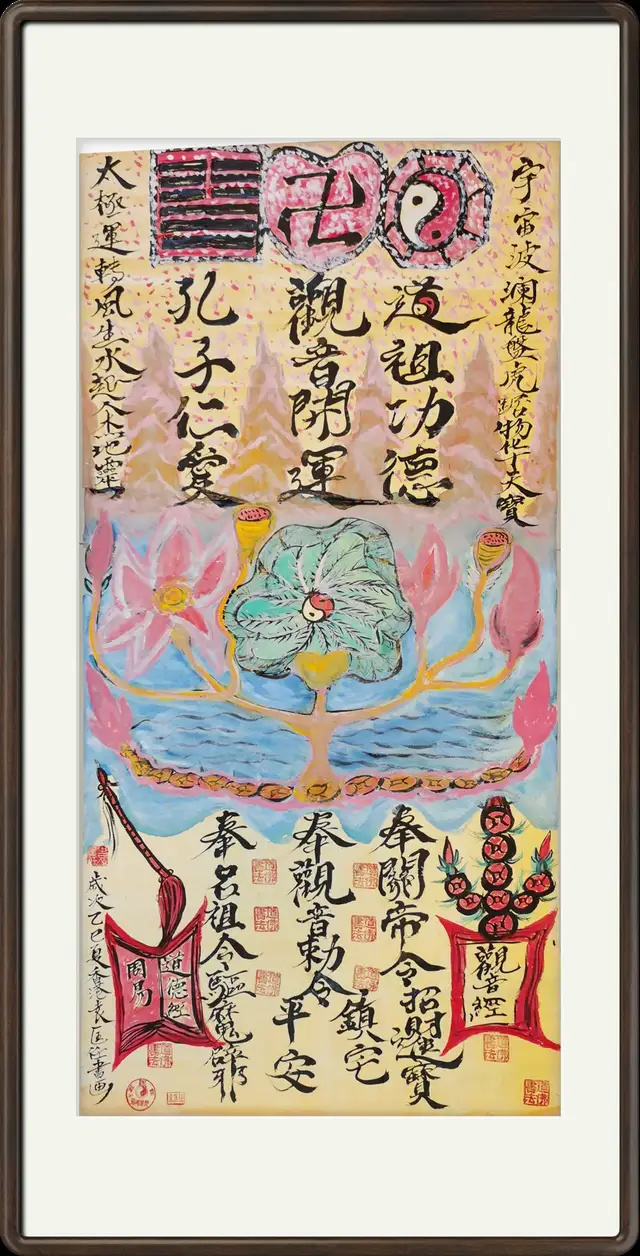 宇宙波瀾龍盤虎踞物化天寶
道祖功德
觀音開運
孔子仁愛
太極運轉風生水起人杰地靈
奉關帝令招財進寶
鎮宅
奉觀音勅令
平安
奉呂祖令驅魔辟邪
觀音經
道德經
周易
歲次乙巳
書画